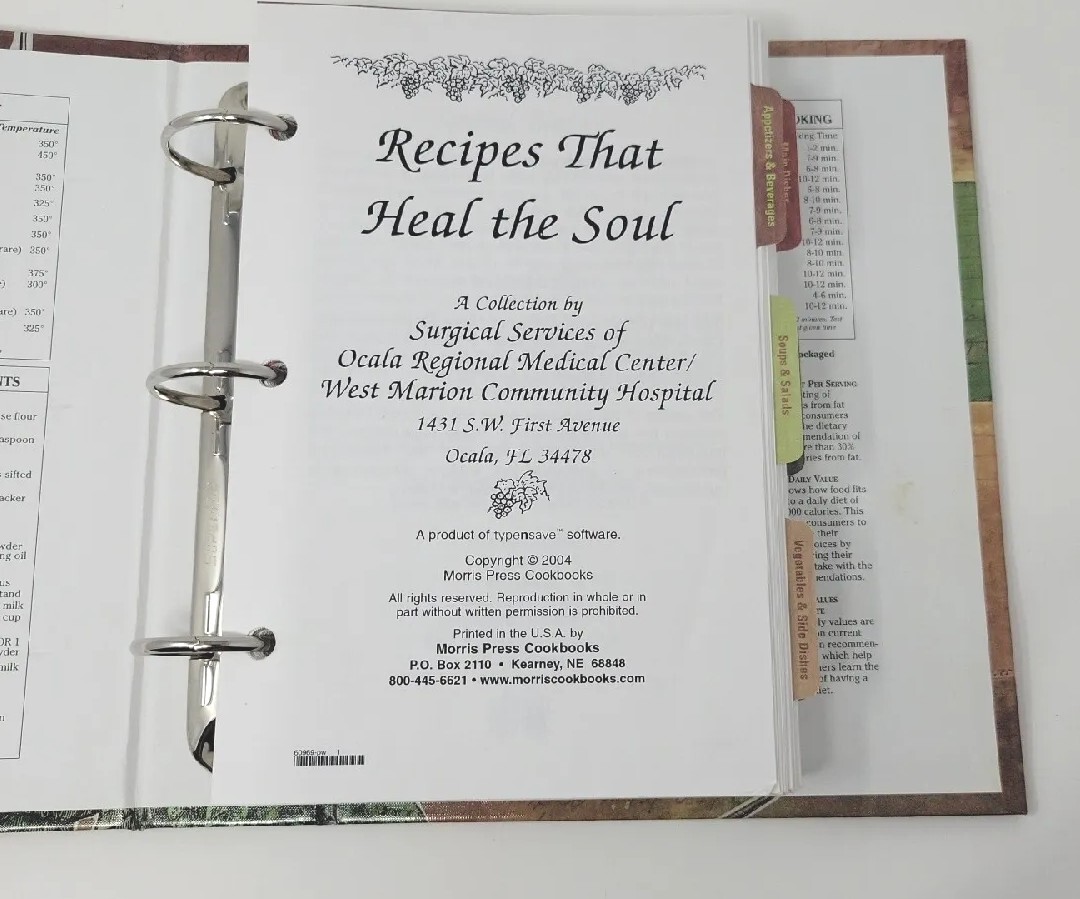 Temperature
350°
450°
350°
350°
325°
350°
350°
rare) 350°
375°
300°
350°
325°
NTS
se flour
aspoon
sifted
acker
wder
ng oil
stand
milk
cup
OR 1
wder
milk
Recipes That
Heal the Soul
A Collection by
Surgical Services of
Ocala Regional Medical Center/
West Marion Community Hospital
1431 S.W. First Avenue
Ocala, FL 34478
A product of typensave™ software.
Copyright © 2004
Morris Press Cookbooks
All rights reserved. Reproduction in whole or in
part without written permission is prohibited.
Printed in the U.S.A. by
Morris Press Cookbooks
P.O. Box 2110 • Kearney, NE 68848
800-445-6621 • www.morriscookbooks.com
Appetizers & Beverages
Main Dishes
Soups & Salads
Vegetables & Side Dishes
OKING
ing Time
7-9 min.
6-8 min.
10-12 min.
6-8 min.
8-10 min.
7-9 min.
6-8 min.
7-9 min.
10-12 min.
8-10 min.
8-10 min.
10-12 min.
10-12 min.
4-6 min.
10-12 min.
packaged
PER SERVING
ting of
s from fat
consumers
he dietary
mendation of
re than 30%
ries from fat.
DAILY VALUE
ows how food fits
o a daily diet of
000 calories. This
consumers to
their
oices by
ring their
take with the
endations.
ALUES
ly values are
on current
n recommen-
which help
mers learn the
of having a
diet.